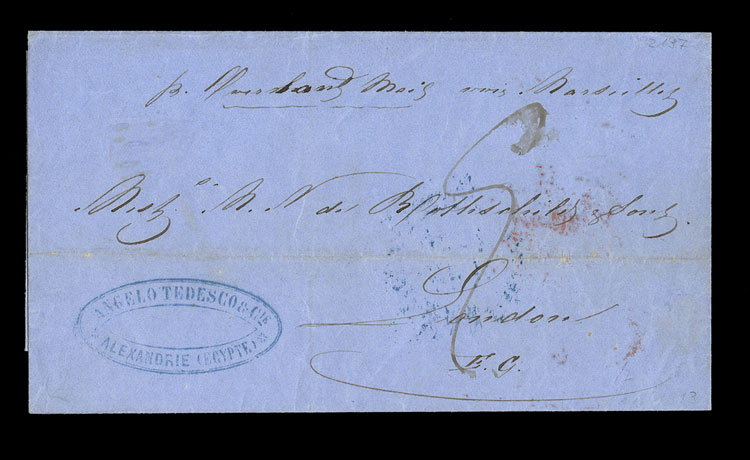 p. Overland Mail voie Marseilles
Mess.rs N. M. de Rothschild & Sons
London
E. C.
ANGELO TEDESCO & CIE
ALEXANDRIE (EGYPTE)